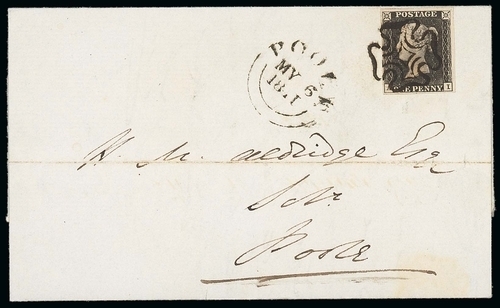 POSTAGE
ONE PENNY
I
POOLE
MY 6
1841
H. M. Aldridge Esq
Poole